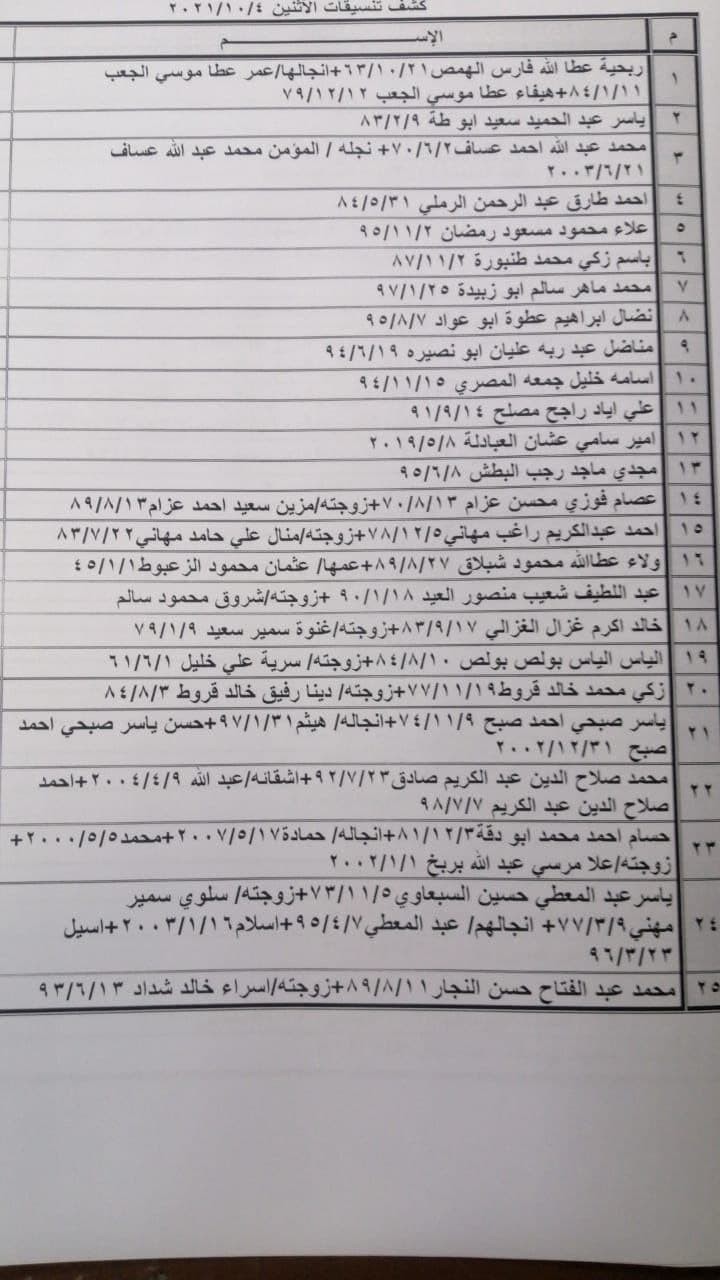 كشف تنسيقات الأثنين ٢٠٢١/١٠/٤
م الإســـــــــم
١ ربحية عطا الله فارس الهمص٦٣/١٠/٢١+انجالها/عمر عطا موسي الجعب
٨٤/١/١١+هيفاء عطا موسي الجعب ٧٩/١٢/١٢
٢ ياسر عبد الحميد سعيد ابو طة ٨٣/٢/٩
٣ محمد عبد الله احمد عساف٧٠/٦/٢+ نجله / المؤمن محمد عبد الله عساف
٢٠٠٣/٦/٢١
٤ احمد طارق عبد الرحمن الرملي ٨٤/٥/٣١
٥ علاء محمود مسعود رمضان ٩٥/١١/٢
٦ باسم زكي محمد طنبورة ٨٧/١١/٢
٧ محمد ماهر سالم ابو زبيدة ٩٧/١/٢٥
٨ نضال ابراهيم عطوة ابو عواد ٩٥/٨/٧
٩ مناضل عبد ربه عليان ابو نصيره ٩٤/٦/١٩
١٠ اسامه خليل جمعه المصري ٩٤/١١/١٥
١١ علي اياد راجح مصلح ٩١/٩/١٤
١٢ امير سامي عشان العبادلة ٢٠١٩/٥/٨
١٣ مجدي ماجد رجب البطش ٩٥/٦/٨
١٤ عصام فوزي محسن عزام ٧٠/٨/١٣+زوجته/مزين سعيد احمد عزام٨٩/٨/١٣
١٥ احمد عبدالكريم راغب مهاني٧٨/١٢/٥+زوجته/منال علي حامد مهاني٨٣/٧/٢٢
١٦ ولاء عطاالله محمود شبلاق ٨٩/٨/٢٧+عمها/ عثمان محمود الزعبوط٤٥/١/١
١٧ عبد اللطيف شعيب منصور العيد ٩٠/١/١٨ +زوجته/شروق محمود سالم
١٨ خالد اكرم غزال الغزالي ٨٣/٩/١٧+زوجته/غنوة سمير سعيد ٧٩/١/٩
١٩ الياس الياس بولص بولص ٨٤/٨/١٠+زوجته/ سرية علي خليل ٦١/٦/١
٢٠ زكي محمد خالد قروط٧٧/١١/١٩+زوجته/ دينا رفيق خالد قروط ٨٤/٨/٣
٢١ ياسر صبحي احمد صبح ٧٤/١١/٩+انجاله/ هيثم٩٧/١/٣١+حسن ياسر صبحي احمد
صبح ٢٠٠٢/١٢/٣١
٢٢ محمد صلاح الدين عبد الكريم صادق٩٢/٧/٢٣+اشقائه/عبد الله ٢٠٠٤/٤/٩+احمد
صلاح الدين عبد الكريم ٩٨/٧/٧
٢٣ حسام احمد محمد ابو دقة٨١/١٢/٣+انجاله/ حمادة٢٠٠٧/٥/١٧+محمد٢٠٠٠/٥/٥+
زوجته/علا مرسي عبد الله بربخ ٢٠٠٢/١/١
٢٤ ياسر عبد المعطي حسين السبعاوي٧٣/١١/٥+زوجته/ سلوي سمير
مهني٧٧/٣/٩+ انجالهم/ عبد المعطي٩٥/٤/٧+اسلام٢٠٠٣/١/١٦+اسيل
٩٦/٣/٢٣
٢٥ محمد عبد الفتاح حسن النجار٨٩/٨/١١+زوجته/اسراء خالد شداد ٩٣/٦/١٣